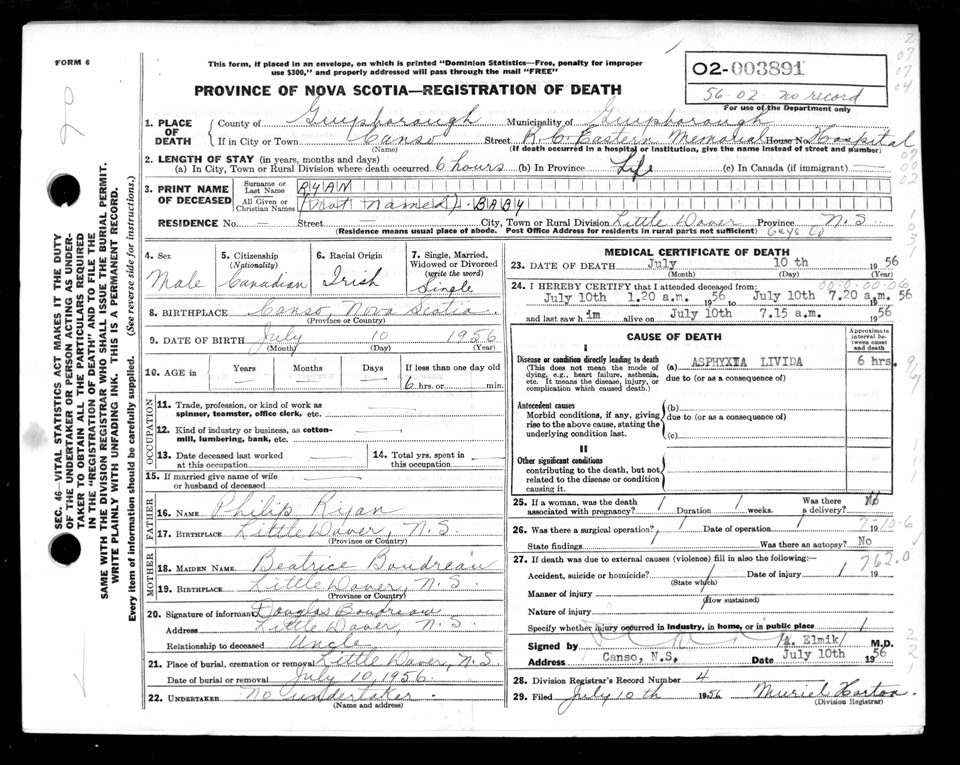 FORM 6
This form, if placed in an envelope, on which is printed "Dominion Statistics—Free, penalty for improper
use $300," and properly addressed will pass through the mail "FREE"
02-003891
56-02 no record
For use of the Department only
PROVINCE OF NOVA SCOTIA—REGISTRATION OF DEATH
1. PLACE OF DEATH
County of Guysborough Municipality of Guysborough
If in City or Town Canso Street R.C. Eastern Memorial House No. Hospital
(Name) (If death occurred in a hospital or institution, give the name instead of street and number)
2. LENGTH OF STAY (in years, months and days)
(a) In City, Town or Rural Division where death occurred 6 hours (b) In Province Life (c) In Canada (if immigrant)
3. PRINT NAME OF DECEASED
Surname or Last Name RYAN
All Given or Christian Names (Not Named) BABY
RESIDENCE No. — Street — City, Town or Rural Division Little Dover Province N.S
(Residence means usual place of abode. Post Office Address for residents in rural parts not sufficient) Guys. Co
4. Sex
Male
5. Citizenship
(Nationality)
Canadian
6. Racial Origin
Irish
7. Single, Married,
Widowed or Divorced
(write the word)
Single
8. BIRTHPLACE Canso, Nova Scotia.
(Province or Country)
9. DATE OF BIRTH July 10 1956
(Month) (Day) (Year)
10. AGE in
Years Months Days If less than one day old
6 hrs. or min.
OCCUPATION
11. Trade, profession, or kind of work as
spinner, teamster, office clerk, etc.
12. Kind of industry or business, as cotton-
mill, lumbering, bank, etc.
13. Date deceased last worked
at this occupation
14. Total yrs. spent in
this occupation
15. If married give name of wife
or husband of deceased
FATHER
16. NAME Philip Ryan
17. BIRTHPLACE Little Dover, N.S.
(Province or Country)
MOTHER
18. MAIDEN NAME Beatrice Boudreau
19. BIRTHPLACE Little Dover, N.S.
(Province or Country)
20. Signature of informant Douglas Boudreau
Address Little Dover, N.S.
Relationship to deceased Uncle
21. Place of burial, cremation or removal Little Dover, N.S.
Date of burial or removal July 10, 1956.
22. UNDERTAKER No undertaker.
(Name and address)
MEDICAL CERTIFICATE OF DEATH
23. DATE OF DEATH July 10 th 1956
(Month) (Day) (Year)
24. I HEREBY CERTIFY that I attended deceased from:
July 10th 1.20 a.m. 1956 to July 10th 7.20 a.m. 56
and last saw him alive on July 10th 7.15 a.m. 1956
CAUSE OF DEATH
Approximate
interval between
cause
and death
I
Disease or condition directly leading to death
(This does not mean the mode of
dying, e.g., heart failure, asthenia,
etc. It means the disease, injury, or
complication which caused death.)
(a) ASPHYXIA LIVIDA 6 hrs.
due to (or as a consequence of)
Antecedent causes
Morbid conditions, if any, giving
rise to the above cause, stating the
underlying condition last.
(b)
due to (or as a consequence of)
(c)
II
Other significant conditions
contributing to the death, but not
related to the disease or condition
causing it.
25. If a woman, was the death
associated with pregnancy? Duration weeks. Was there
a delivery? No
26. Was there a surgical operation? Date of operation 19
State findings Was there an autopsy? No
7-10-6
27. If death was due to external causes (violence) fill in also the following:—
Accident, suicide or homicide? Date of injury 19
762.0
(State which)
Manner of injury
(How sustained)
Nature of injury
Specify whether injury occurred in industry, in home, or in public place
Signed by /A. Elmik/ M.D.
Address Canso, N.S. Date July 10th 1956
28. Division Registrar's Record Number 4
29. Filed July 10th 1956 Muriel Horton.
(Division Registrar)
SEC. 46—VITAL STATISTICS ACT MAKES IT THE DUTY
OF THE UNDERTAKER OR PERSON ACTING AS UNDER-
TAKER TO OBTAIN ALL THE PARTICULARS REQUIRED
IN THE "REGISTRATION OF DEATH" AND TO FILE THE
SAME WITH THE DIVISION REGISTRAR WHO SHALL ISSUE THE BURIAL PERMIT.
WRITE PLAINLY WITH UNFADING INK. THIS IS A PERMANENT RECORD.
Every item of information should be carefully supplied. (See reverse side for instructions.)